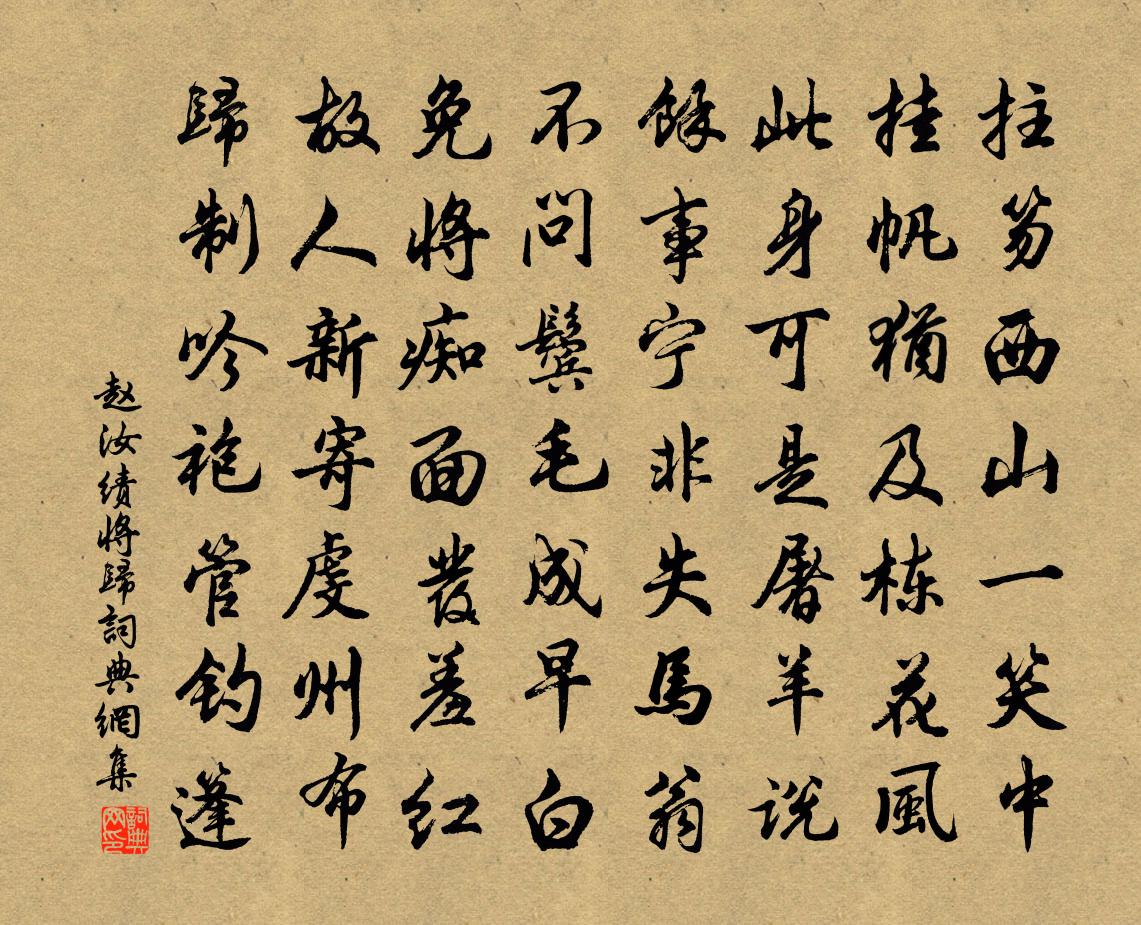 拄笏西山一笑中
挂帆猶及栋花風
此身可是屠羊说
餘事宁非失馬翁
不问鬓毛成早白
免将痴面發羞红
故人新寄虔州布
歸制吟袍管钓篷
赵汝績将歸詞典網集
詞典网印